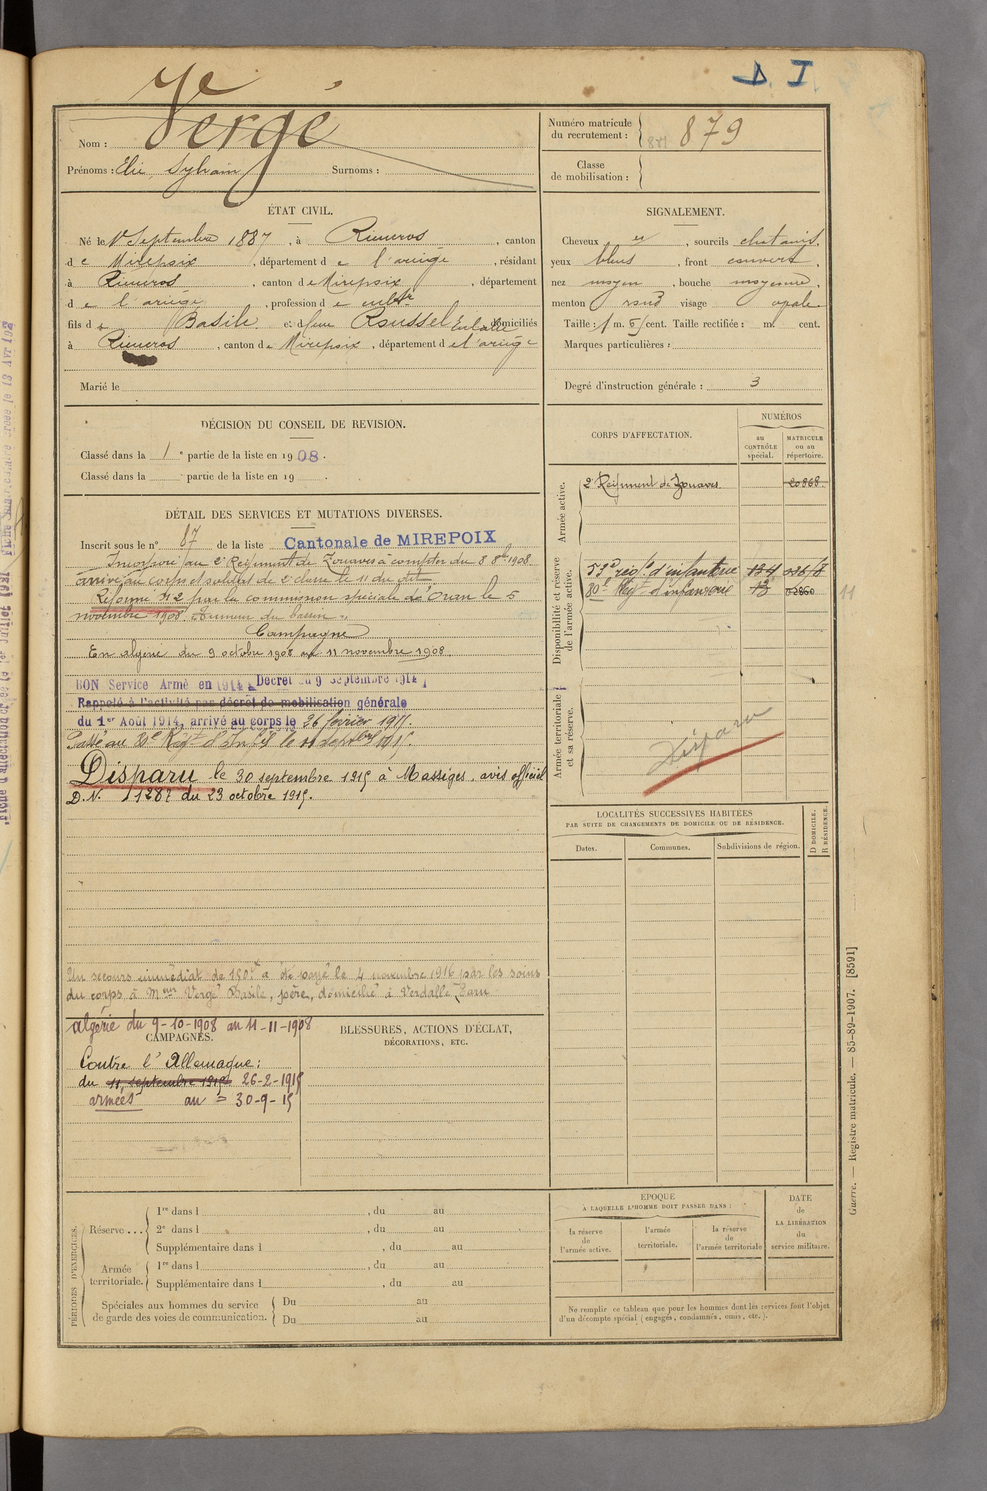 D. I
Vergé
Nom :
Prénoms : Elie, Sylvain Surnoms :
Numéro matricule du recrutement : 879
Classe de mobilisation :
ÉTAT CIVIL.
Né le 1er Septembre 1887, à , canton
de Mirepoix, département de l'ariège, résidant
à , canton de Mirepoix, département
de l'ariège, profession de cultr
fils de Basile et de feue Roussel Eulalie domiciliés
à , canton de Mirepoix, département de l'ariège
Marié le
SIGNALEMENT.
Cheveux et , sourcils chatains,
yeux bleus , front couvert ,
nez moyen , bouche moyenne ,
menton rond visage ovale
Taille : 1 m. cent. Taille rectifiée : m. cent.
Marques particulières :
Degré d'instruction générale : 3
DÉCISION DU CONSEIL DE REVISION.
Classé dans la 1e partie de la liste en 1908.
Classé dans la partie de la liste en 19 .
DÉTAIL DES SERVICES ET MUTATIONS DIVERSES.
Inscrit sous le n° 87 de la liste Cantonale de MIREPOIX
Incorporé au 2e Régiment de Zouaves à compter du 8 8bre 1908
arrivé au corps et soldat de 2e classe le 11 du dit
Réformé N° 2 par la commission spéciale d'Oran le 5
novembre 1908 Tumeur du bassin.
Campagne
En algérie du 9 octobre 1908 au 11 novembre 1908.
BON Service Armé en 1914. Décret du 9 Septembre 1914
Rappelé à l'activité par décret de mobilisation générale
du 1er Août 1914, arrivé au corps le 26 février 1915.
Passé au 80e Régt d'Infie le 11 septbre 1915.
Disparu le 30 septembre 1915 à Massiges, avis officiel
D.N. 11287 du 23 octobre 1915.
Un secours immédiat de 150f a été payé le 4 novembre 1916 par les soins
du corps à Meur Vergé Basile, père, domicilié à Verdalle, Tarn
algérie du 9-10-1908 au 11-11-1908
CAMPAGNES.
Contre l'Allemagne :
du 11 septembre 1915 26-2-1915
armées au = 30-9-15
BLESSURES, ACTIONS D'ÉCLAT,
DÉCORATIONS, ETC.
CORPS D'AFFECTATION.
NUMÉROS
au CONTRÔLE spécial.
MATRICULE ou au répertoire.
Armée active.
2e Régiment de Zouaves 20868
Disponibilité et réserve de l'armée active.
d'infanterie
80e Régt d'infanterie
11
Armée territoriale et sa réserve.
Disparu
LOCALITÉS SUCCESSIVES HABITÉES
PAR SUITE DE CHANGEMENTS DE DOMICILE OU DE RÉSIDENCE.
Dates. Communes. Subdivisions de région. D DOMICILE. R RÉSIDENCE.
PÉRIODES D'EXERCICES.
Réserve ...
1re dans l , du au
2e dans l , du au
Supplémentaire dans l , du au
Armée territoriale.
1re dans l , du au
Supplémentaire dans l , du au
Spéciales aux hommes du service de garde des voies de communication.
Du au
Du au
ÉPOQUE
À LAQUELLE L'HOMME DOIT PASSER DANS :
la réserve de l'armée active.
l'armée territoriale.
la réserve de l'armée territoriale
DATE de LA LIBÉRATION du service militaire.
Ne remplir ce tableau que pour les hommes dont les services font l'objet
d'un décompte spécial (engagés, condamnés, omis, etc.).
Guerre. — Registre matricule. — 85-89-1907. [8591]